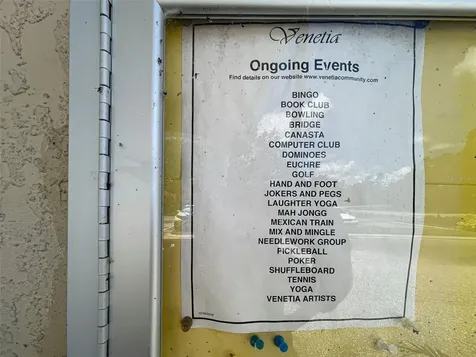 Venetia
Ongoing Events
Find details on our website www.venetiacommunity.com
BINGO
BOOK CLUB
BOWLING
BRIDGE
CANASTA
COMPUTER CLUB
DOMINOES
EUCHRE
GOLF
HAND AND FOOT
JOKERS AND PEGS
LAUGHTER YOGA
MAH JONGG
MEXICAN TRAIN
MIX AND MINGLE
NEEDLEWORK GROUP
PICKLEBALL
POKER
SHUFFLEBOARD
TENNIS
YOGA
VENETIA ARTISTS